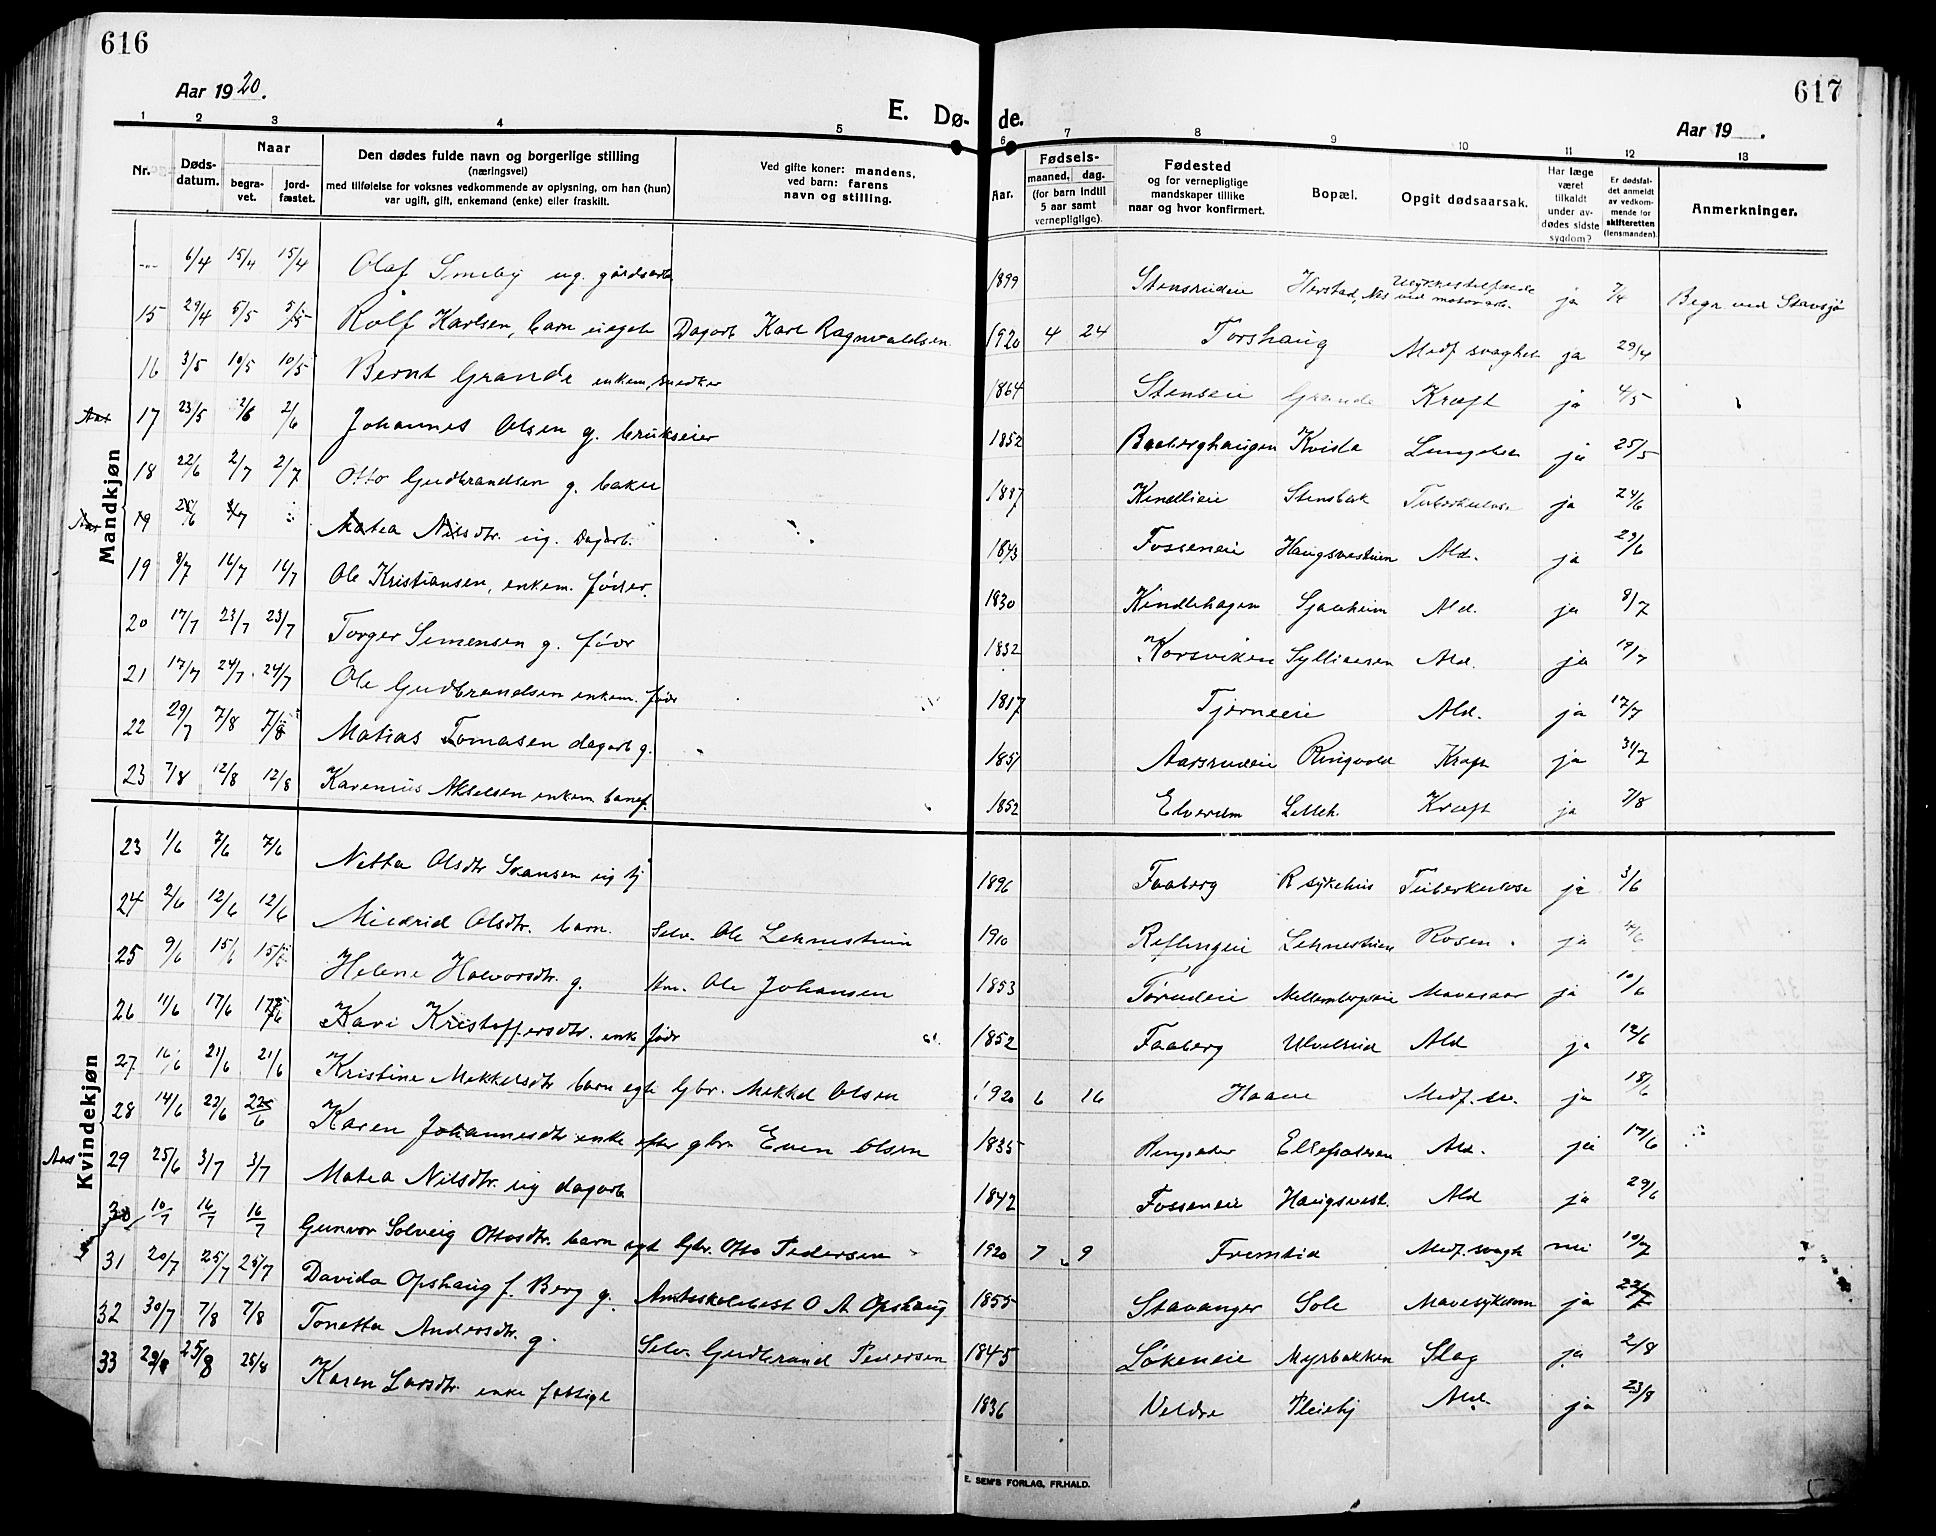 616
617
Aar 1920.
E. Dø- de.
Aar 19 .
1 2 3 4 5 6 7 8 9 10 11 12 13
Nr.
Døds-datum.
Naar
begra-vet.
jord-fæstet.
Den dødes fulde navn og borgerlige stilling
(næringsvei)
med tilføielse for voksnes vedkommende av oplysning, om han (hun)
var ugift, gift, enkemand (enke) eller fraskilt.
Ved gifte koner: mandens,
ved barn: farens
navn og stilling.
Aar.
Fødsels-
maaned, dag.
(for barn indtil
5 aar samt
vernepligtige).
Fødested
og for vernepligtige
mandskaper tillike
naar og hvor konfirmert.
Bopæl.
Opgit dødsaarsak.
Har læge
været
tilkaldt
under av-
dødes sidste
sygdom?
Er dødsfal-
det anmeldt
av vedkom-
mende for
skifteretten
(lensmanden).
Anmerkninger.
Mandkjøn
6/4 15/4 15/4 Olaf Smeby ug. gårdsarb 1899 Stensrudeie Herstad, Nes ved motor ja 7/4 Begr. ved Stavsjø
15 29/4 5/5 5/5 Rolf Karlsen, barn uegte Dagarb Karl Ragnvaldsen 1920 4 24 Torshaug Medf. svaghet ja 29/4
16 3/5 10/5 10/5 Bernt Grande enkem, snedker 1864 Stenseie Grande Kræft ja 4/5
Aas 17 23/5 2/6 2/6 Johannes Olsen g. brukseier 1852 Baaberghaugen Kvisla ja 25/5
18 22/6 2/7 2/7 Otto Gudbrandsen g. baker 1887 Kindlieie Stensbak Tuberkulose ja 24/6
Aas 19 25/6 3/7 Matea Nilsdtr. ug. Dagarb. 1843 Fosseneie Haugsvestuen Ald. ja 29/6
19 8/7 16/7 16/7 Ole Kristiansen, enkem. føder. 1830 Kindlihagen Sjaaheim Ald. ja 9/7
20 17/7 23/7 23/7 Torger Simensen g. fødr 1832 Korsviken Sylliaasen Ald. ja 19/7
21 17/7 24/7 24/7 Ole Gudbrandsen enkem. fødr 1817 Tjerneeie Ald. ja 17/7
22 29/7 7/8 7/8 Matias Tomasen dagarb g. 1851 Aasrudeie Ringvold Kræft ja 31/7
23 7/8 12/8 12/8 Karenius Akselsen enkem 1852 Elverum Lilleh. Kræft ja 7/8
Kvindekjøn
23 1/6 7/6 7/6 Netta Olsdtr Svansen ug tj 1896 Faaberg R sykehus Tuberkulose ja 3/6
24 2/6 12/6 12/6 Mildrid Olsdtr. barn. Selv. Ole Lehnestuen 1910 Reflingeie Lehnestuen Rosen. ja 4/6
25 9/6 15/6 15/6 Helene Halvorsdtr. g. Hm. Ole Johansen 1853 Mellembergseie Mavesaar ja 10/6
26 11/6 17/6 17/6 Kari Kristoffersdtr. enke fødr 1852 Faaberg Ulvelsrud Ald ja 12/6
27 16/6 21/6 21/6 Kristine Mekkelsdtr barn egte Gbr. Mekkel Olsen 1920 6 16 Haave Medf. sv. ja 18/6
28 14/6 22/6 22/6 Karen Johannesdtr enke efter gbr Even Olsen 1835 Ringsaker Ald. ja 17/6
Aas 29 25/6 3/7 3/7 Matea Nilsdtr. ug dagarb 1842 Fosseneie Haugsvest. Ald ja 29/6
30 10/7 16/7 16/7 Gunvor Solveig Ottosdtr. barn egt Gbr. Otto Pedersen 1920 7 9 Fremtid Medf. svagh nei 10/7
31 20/7 25/7 25/7 Davida Opshaug f. Berg g. Amtsskolebest O A Opshaug 1855 Stavanger Sole Mavesykdom ja 22/7
32 30/7 7/8 7/8 Tonetta Andersdtr. g. Selv. Gudbrand Pedersen 1845 Løkeneie Myrbakken Slag ja 2/8
33 23/8 25/8 25/8 Karen Larsdtr. enke fattigl 1836 Veldre Pleiehj Ald. ja 23/8
E. SEM'S FORLAG, FR.HALD.